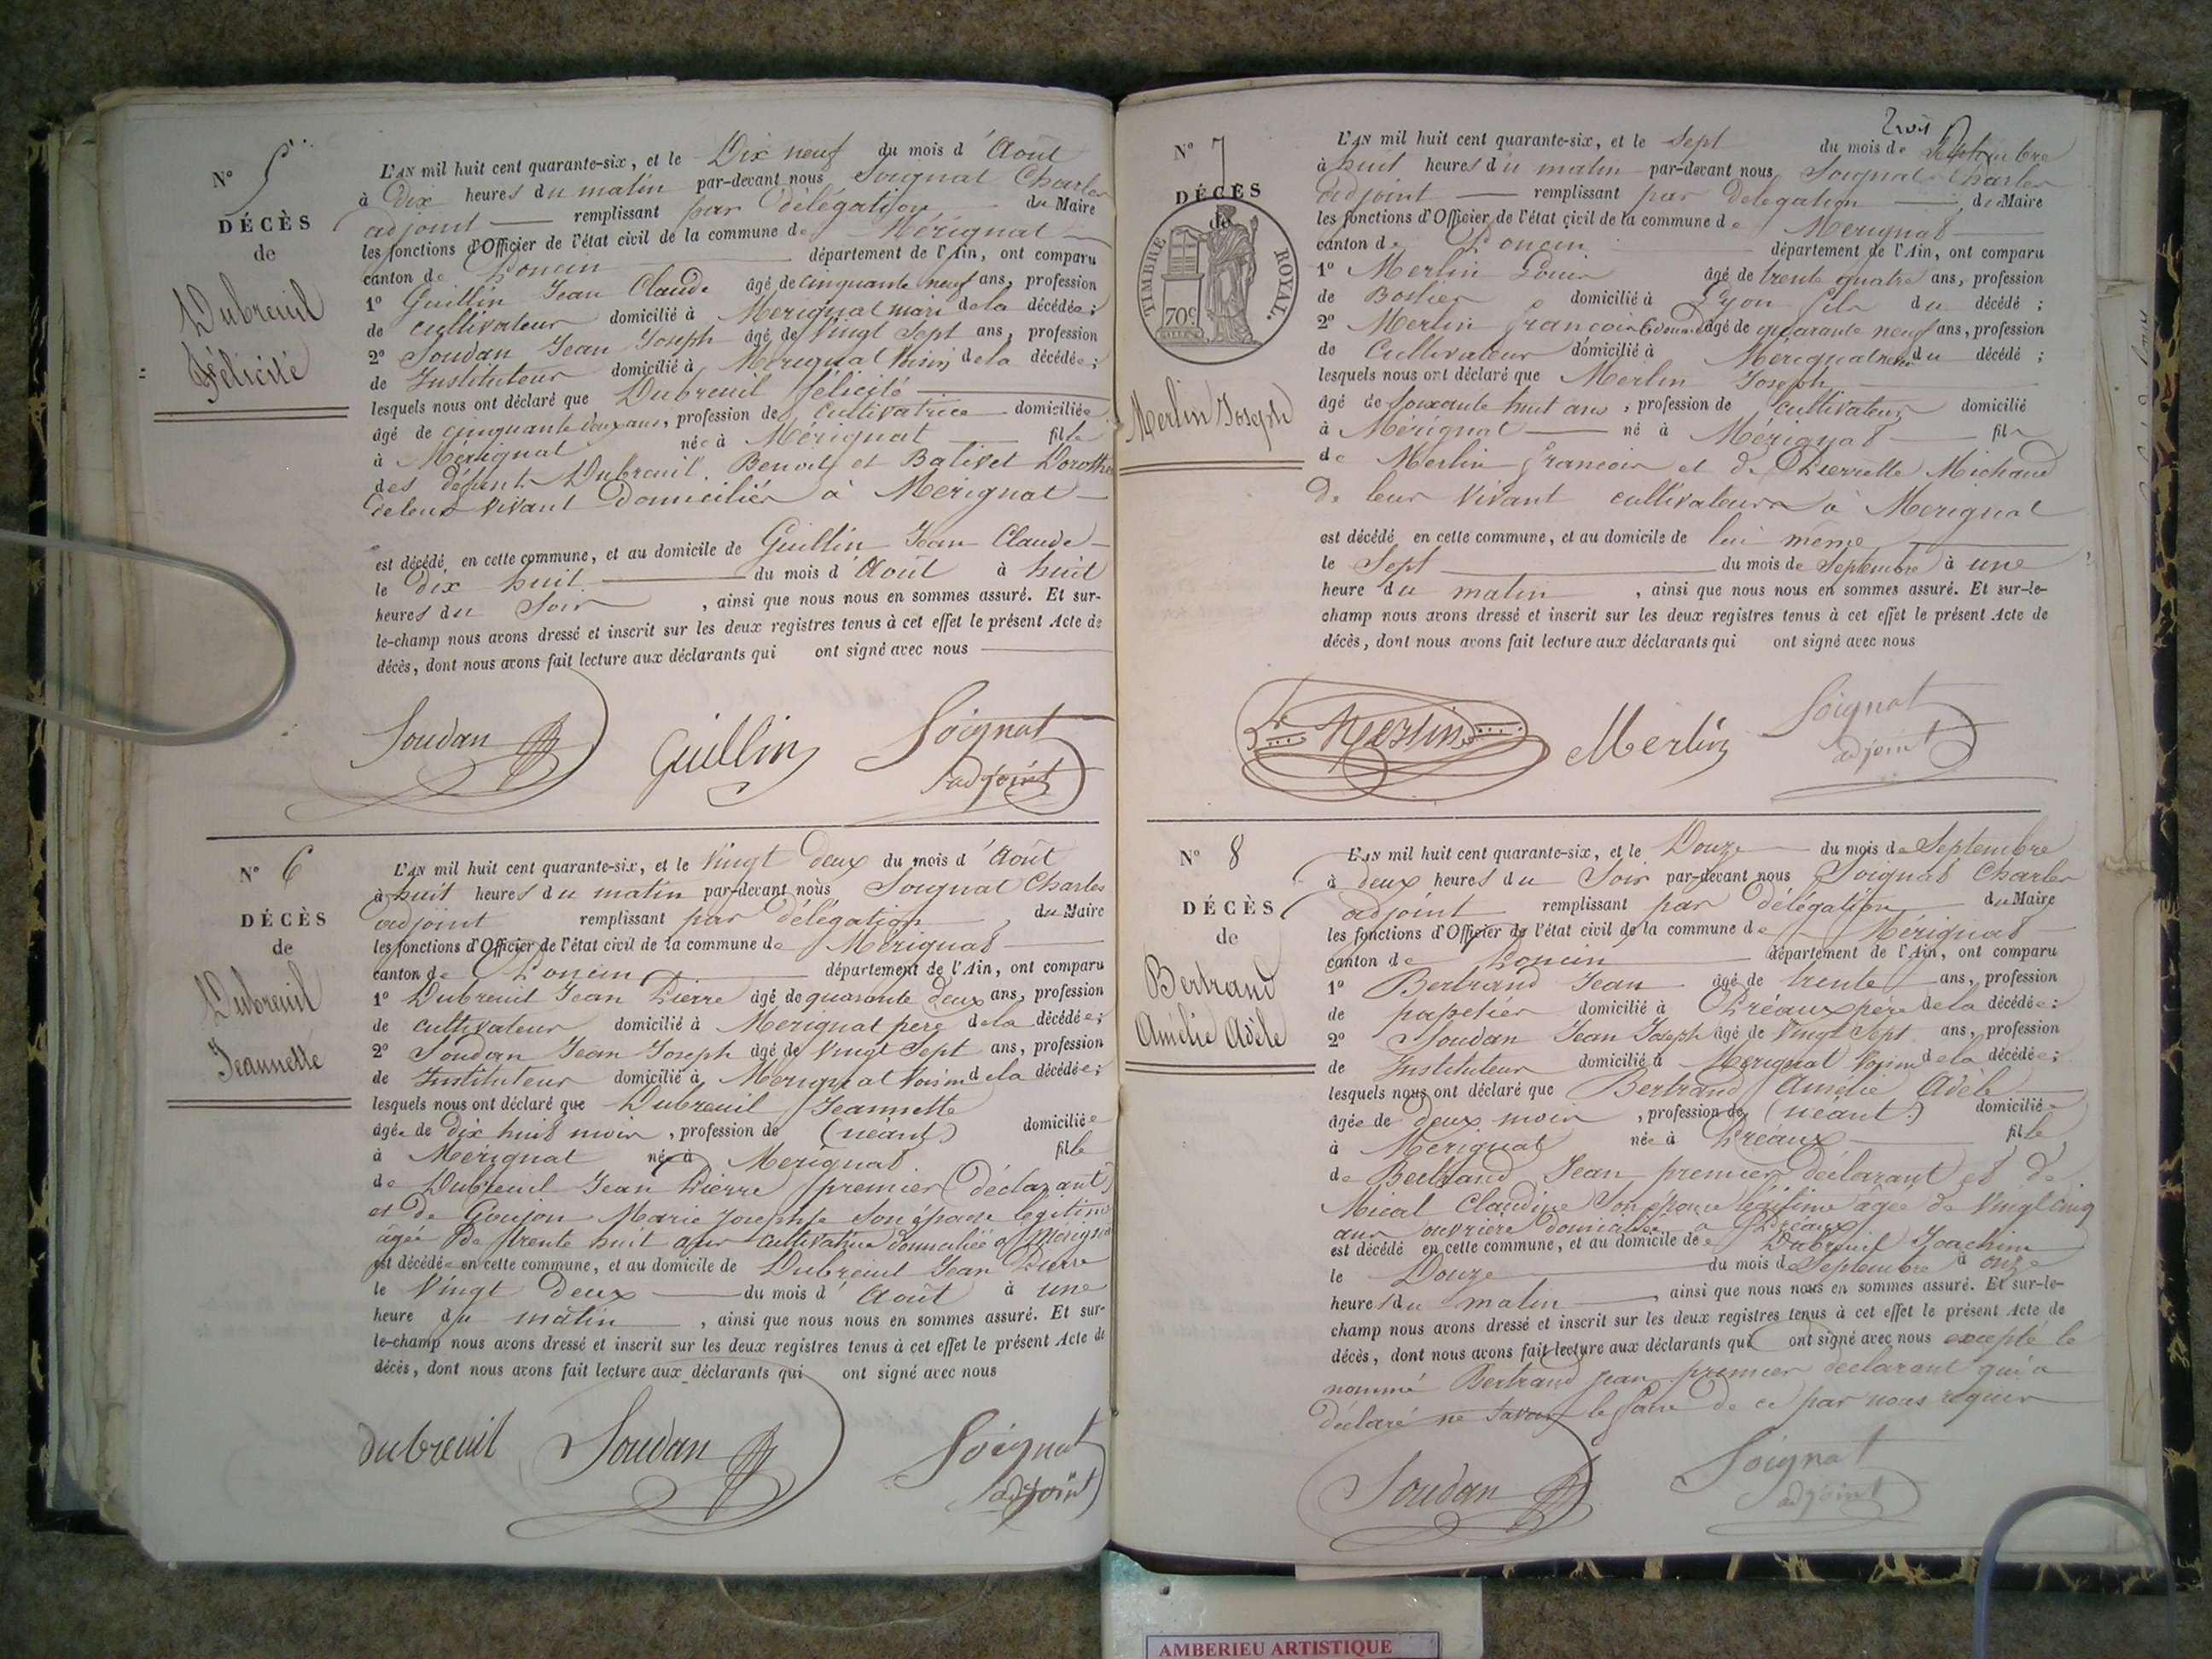 N° 5
DÉCÈS
de
Dubreuil
Félicité
L'AN mil huit cent quarante-six, et le Dix neuf du mois d'Août
à Dix heures du matin par-devant nous Soignat Charles
adjoint remplissant par délégation du Maire
les fonctions d'Officier de l'état civil de la commune de Mérignat
canton de Poncin département de l'Ain, ont comparu
1° Guillin Jean Claude âgé de cinquante neuf ans, profession
de cultivateur domicilié à Merignat mari de la décédée;
2° Soudan Jean Joseph âgé de vingt sept ans, profession
de Instituteur domicilié à Merignat Voisin de la décédée;
lesquels nous ont déclaré que Dubreuil félicité
âgé de cinquante deux ans, profession de cultivatrice domiciliée
à Mérignat née à Mérignat fille
des défunts Dubreuil Benoit et Balivet Dorothé
de leur vivant domiciliés à Merignat
est décédé en cette commune, et au domicile de Guillin Jean Claude
le dix huit du mois d'Août à huit
heures du Soir, ainsi que nous nous en sommes assuré. Et sur-
le-champ nous avons dressé et inscrit sur les deux registres tenus à cet effet le présent Acte de
décès, dont nous avons fait lecture aux déclarants qui ont signé avec nous
Soudan Guillin Soignat
adjoint
N° 6
DÉCÈS
de
Dubreuil
Jeannette
L'AN mil huit cent quarante-six, et le Vingt deux du mois d'Août
à huit heures du matin par-devant nous Soignat Charles
adjoint remplissant par délégation du Maire
les fonctions d'Officier de l'état civil de la commune de Mérignat
canton de Poncin département de l'Ain, ont comparu
1° Dubreuil Jean Pierre âgé de quarante deux ans, profession
de cultivateur domicilié à Merignat pere de la décédée;
2° Soudan Jean Joseph âgé de Vingt Sept ans, profession
de Instituteur domicilié à Mérignat Voisin de la décédée;
lesquels nous ont déclaré que Dubreuil Jeannette
âgée de dix huit mois, profession de (néant) domiciliée
à Merignat née à Merignat fille
de Dubreuil Jean Pierre (premier déclarant)
et de Goujon Marie Josephte Son épouse legitime
âgée de trente huit ans cultivatrice domiciliée à Mérignat
est décédée en cette commune, et au domicile de Dubreuil Jean Pierre
le Vingt deux du mois d'Août à une
heure du matin, ainsi que nous nous en sommes assuré. Et sur-
le-champ nous avons dressé et inscrit sur les deux registres tenus à cet effet le présent Acte de
décès, dont nous avons fait lecture aux déclarants qui ont signé avec nous
dubreuil Soudan Soignat
adjoint
N° 7
DÉCÈS
de
TIMBRE ROYAL.
70c
Merlin Joseph
L'AN mil huit cent quarante-six, et le Sept du mois de Septembre
à huit heures du matin par-devant nous Soignat Charles
adjoint remplissant par délégation du Maire
les fonctions d'Officier de l'état civil de la commune de Merignat
canton de Poncin département de l'Ain, ont comparu
1° Merlin Louis âgé de trente quatre ans, profession
de domicilié à Lyon fils du décédé;
2° Merlin françois âgé de quarante neuf ans, profession
de Cultivateur domicilié à Merignat du décédé;
lesquels nous ont déclaré que Merlin Joseph
âgé de soixante huit ans, profession de cultivateur domicilié
à Mérignat né à Mérignat fils
de Merlin françois et de Pierrette Michaud
De leur Vivant cultivateurs à Merignat
est décédé en cette commune, et au domicile de lui même
le Sept du mois de Septembre à une
heure du matin, ainsi que nous nous en sommes assuré. Et sur-le-
champ nous avons dressé et inscrit sur les deux registres tenus à cet effet le présent Acte de
décès, dont nous avons fait lecture aux déclarants qui ont signé avec nous
Merlin Merlin Soignat
adjoint
N° 8
DÉCÈS
de
Bertrand
Amélie Adèle
L'AN mil huit cent quarante-six, et le Douze du mois de Septembre
à deux heures du Soir par-devant nous Soignat Charles
adjoint remplissant par délégation du Maire
les fonctions d'Officier de l'état civil de la commune de Mérignat
canton de Poncin département de l'Ain, ont comparu
1° Bertrand Jean âgé de trente ans, profession
de papetier domicilié à Préaux père de la décédée:
2° Soudan Jean Joseph âgé de Vingt Sept ans, profession
de Instituteur domicilié à Merignat Voisin de la décédée;
lesquels nous ont déclaré que Bertrand Amélie Adèle
âgée de deux mois, profession de (néant) domiciliée
à Merignat née à Préaux fille
de Bertrand Jean premier déclarant et de
Mical Claudine Son épouse légitime âgée de Vingt cinq
ans ouvrière domiciliée à Préaux
est décédé en cette commune, et au domicile de Dubreuil Joachim
le Douze du mois de Septembre à onze
heures du matin, ainsi que nous nous en sommes assuré. Et sur-le-
champ nous avons dressé et inscrit sur les deux registres tenus à cet effet le présent Acte de
décès, dont nous avons fait lecture aux déclarants qui ont signé avec nous excepté le
nommé Bertrand Jean premier déclarant qui a
déclaré ne Savoir le faire de ce par nous requis
Soudan Soignat
adjoint
AMBERIEU ARTISTIQUE